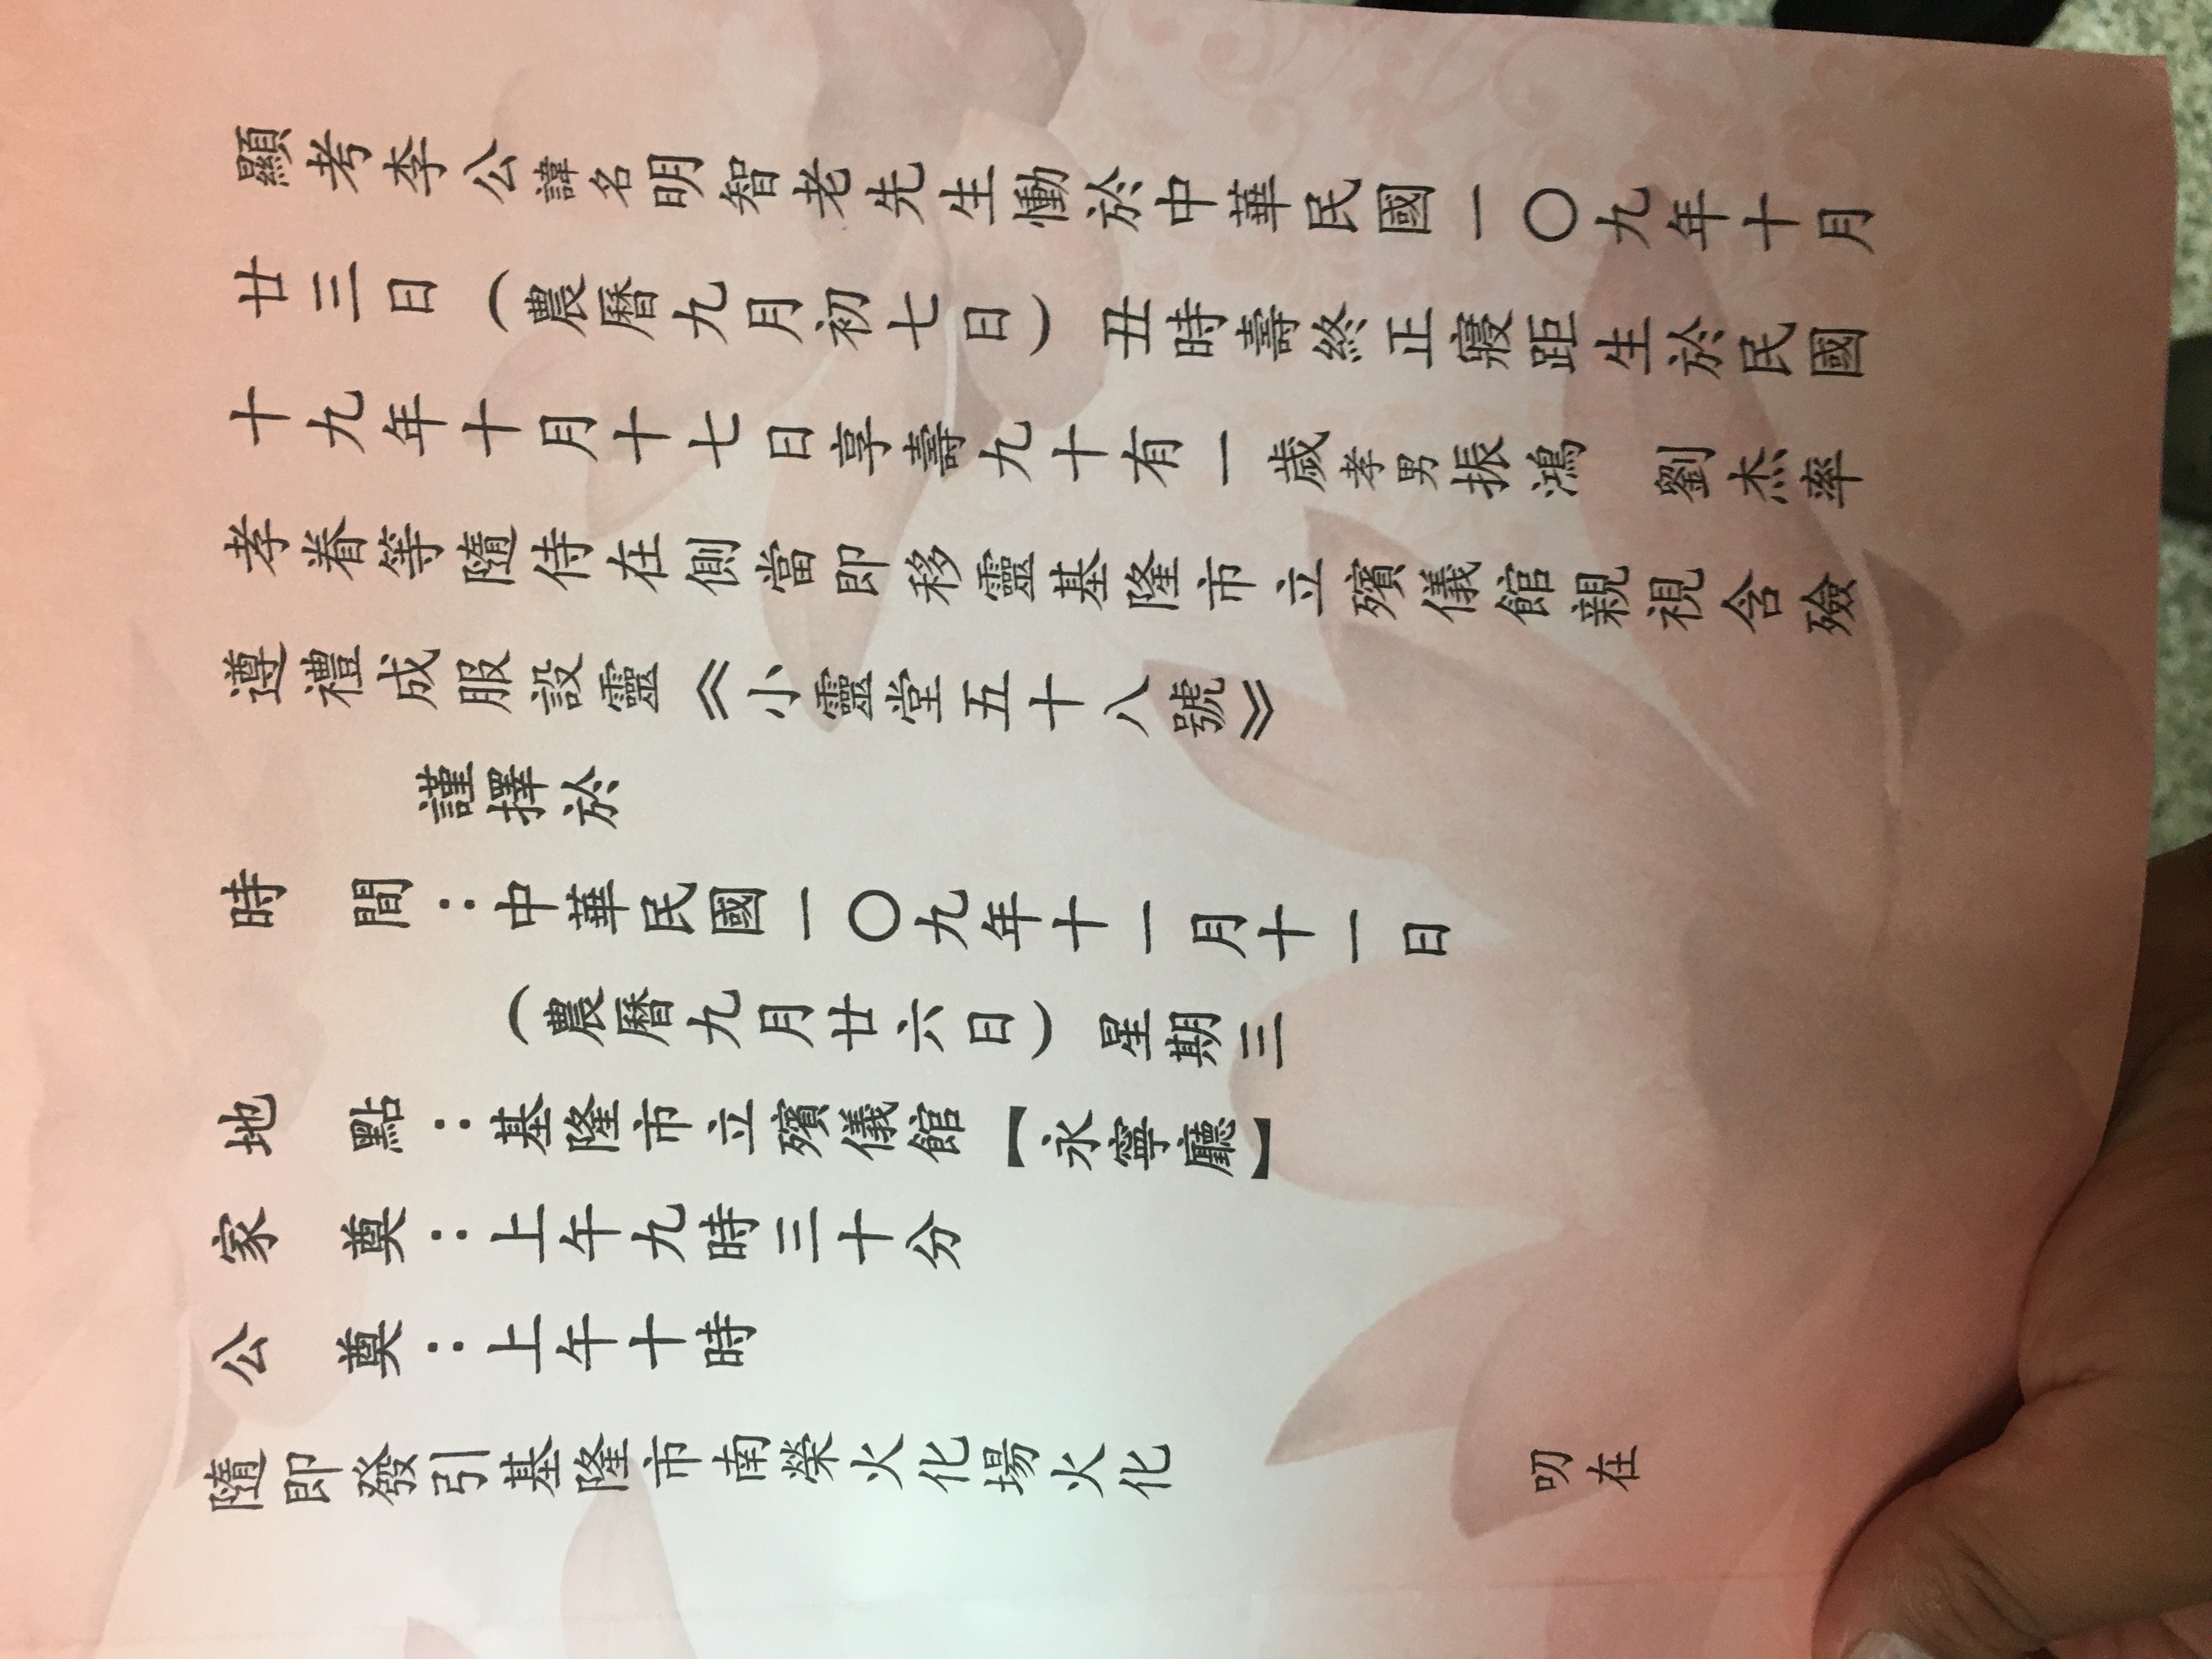 顯考李公諱名明智老先生慟於中華民國一〇九年十月
廿三日（農曆九月初七日）丑時壽終正寢距生於民國
十九年十月十七日享壽九十有一歲孝男振鴻　劉杰率
孝眷等隨侍在側當即移靈基隆市立殯儀館親視含殮
遵禮成服設靈《小靈堂五十八號》
謹擇於
時　間：中華民國一〇九年十一月十一日
（農曆九月廿六日）星期三
地　點：基隆市立殯儀館【永寧廳】
家　奠：上午九時三十分
公　奠：上午十時
隨即發引基隆市南榮火化場火化
叨在